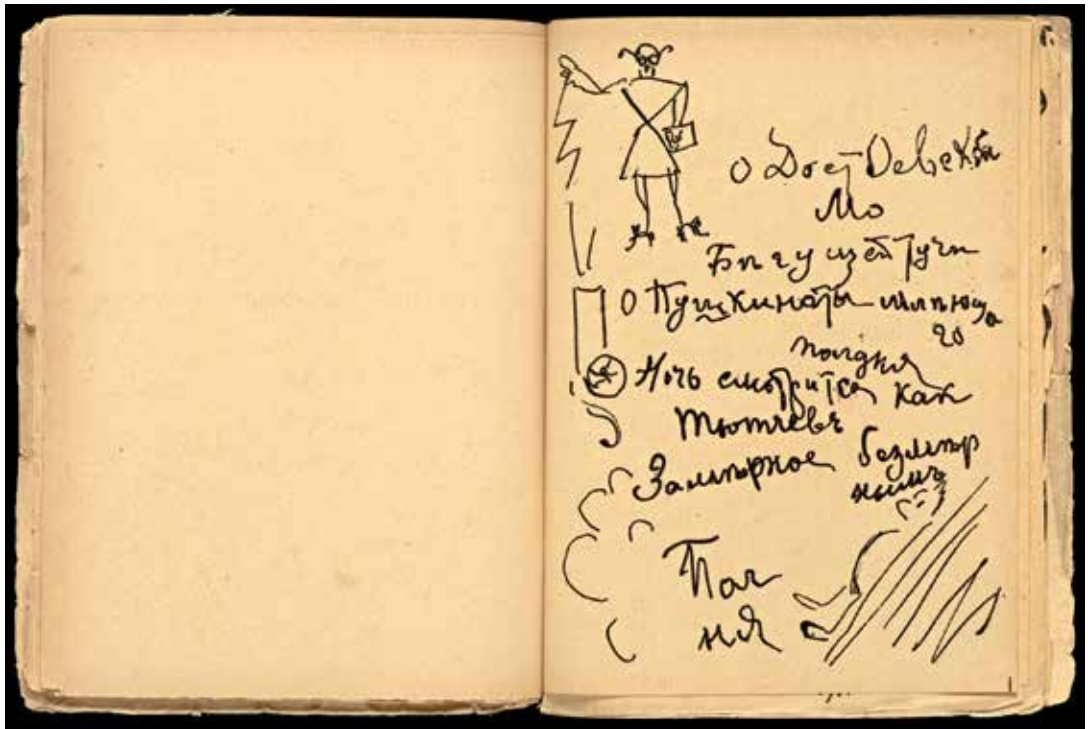 о ДостОевскій
Мо
Бѣгущей тучи
О Пушкиноты млѣюща
го
полдня
Ночь смотрится как
Тютчевъ
Замѣрное безмѣр
нымъ
Пол
ня